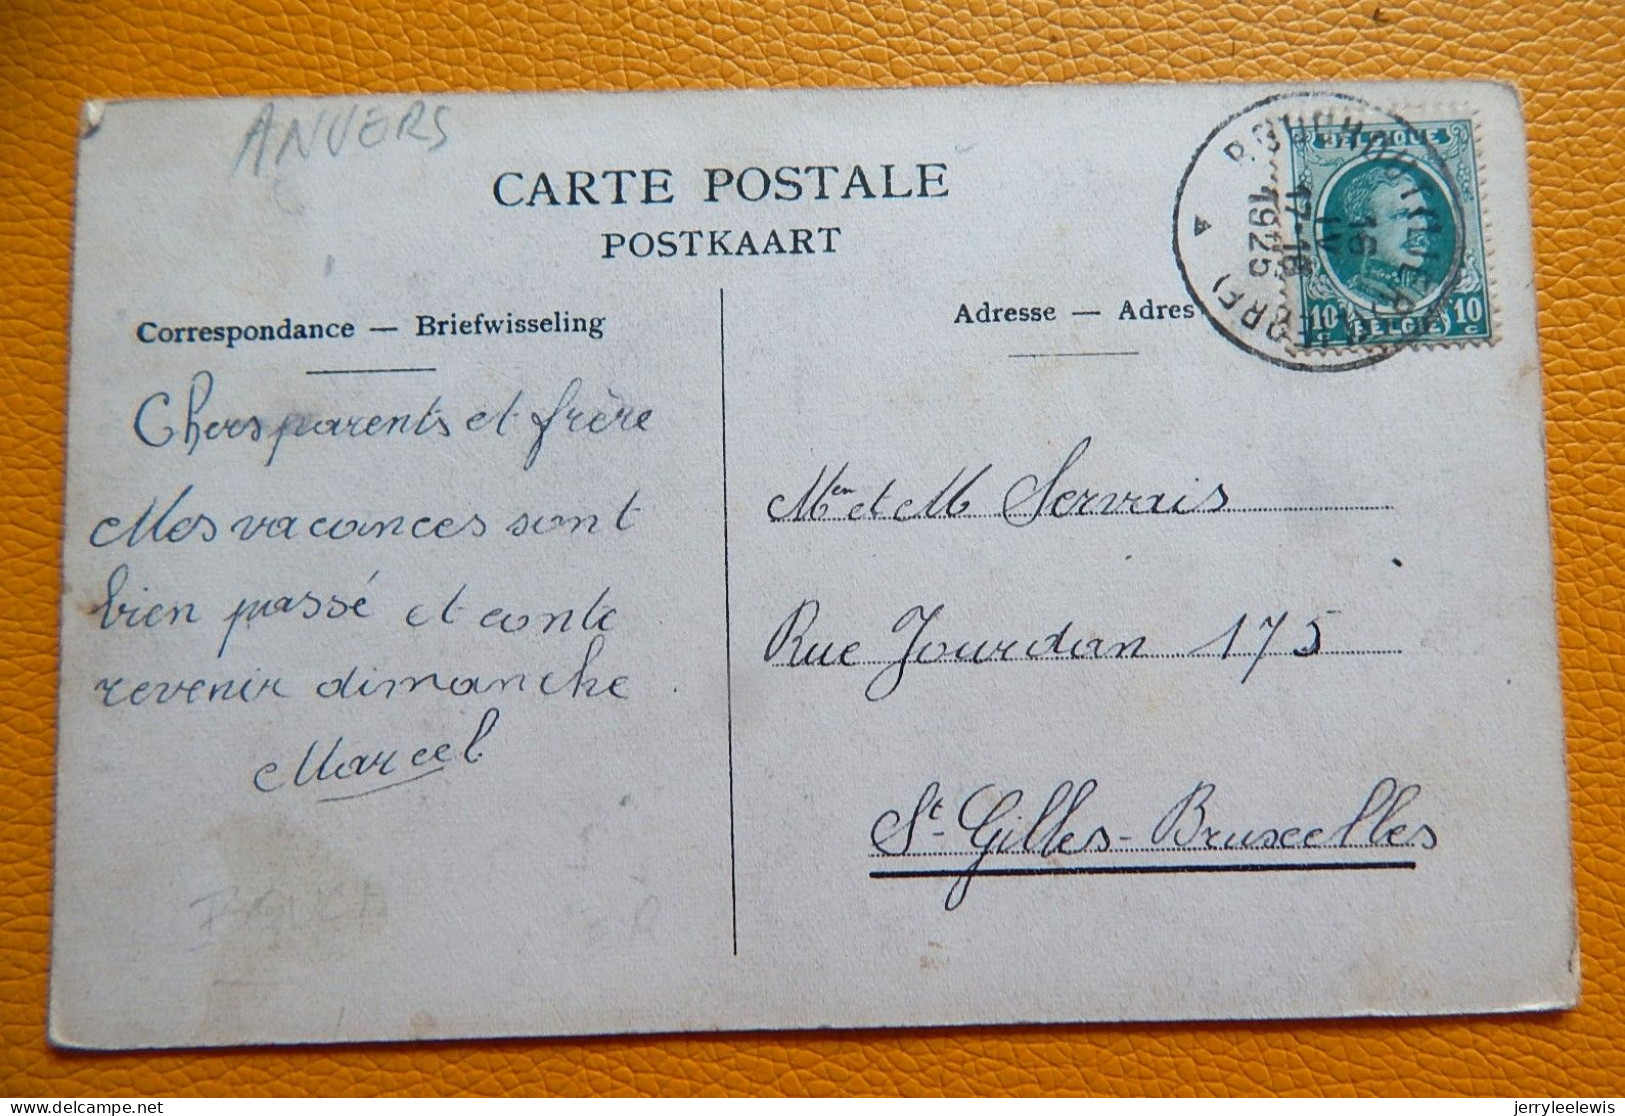 ANVERS
CARTE POSTALE
POSTKAART
Correspondance — Briefwisseling
Adresse — Adres
BELGIQUE
10 10
c c
BELGIË
16
IV
17-18
1925
Chers parents et frère
Mes vacances sont
bien passé et conte
revenir dimanche
Marcel
Men et M Servais
Rue Jourdan 175
St-Gilles-Bruxelles
jerryleelewis